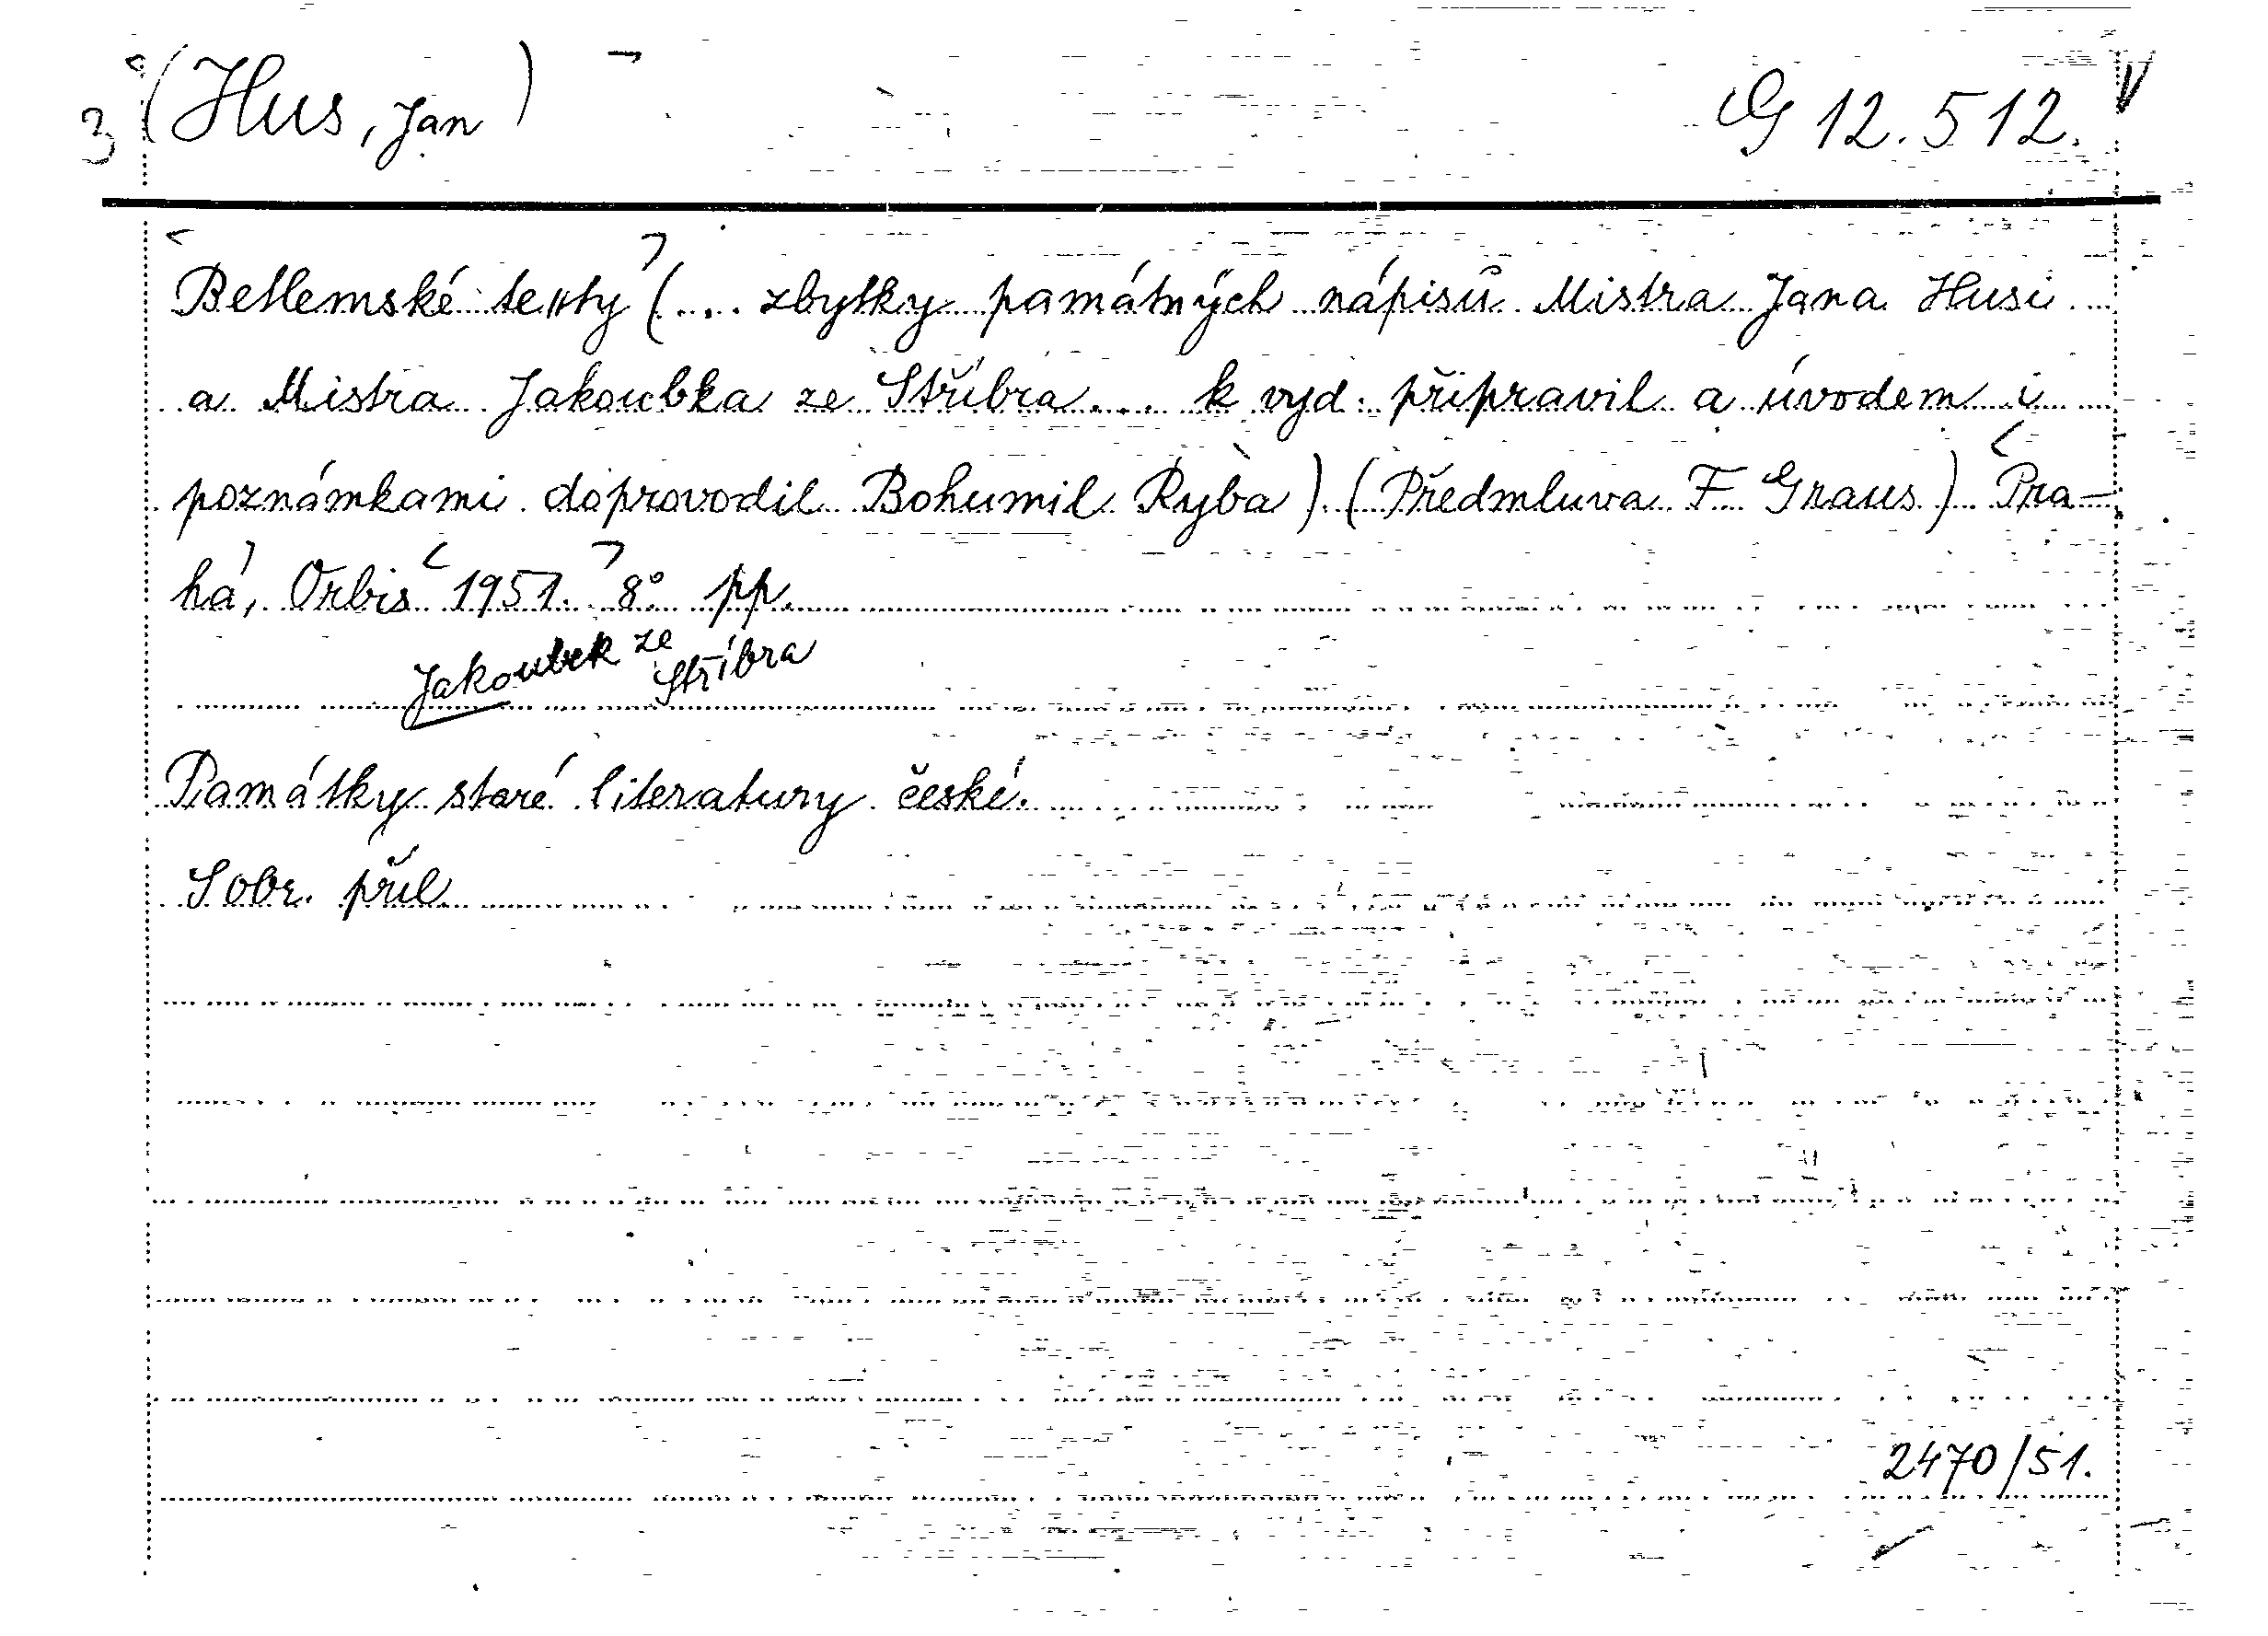 3 (Hus, Jan) G 12.512.
Betlemské texty (... zbytky památných nápisů Mistra Jana Husi
a Mistra Jakoubka ze Stříbra... k vyd. připravil a úvodem i
poznámkami doprovodil Bohumil Ryba) (Předmluva F. Graus) Pra-
ha, Orbis 1951. 8° pp.
Jakoubek ze
Stříbra
Památky staré literatury české.
S obr. příl.
2470/51.